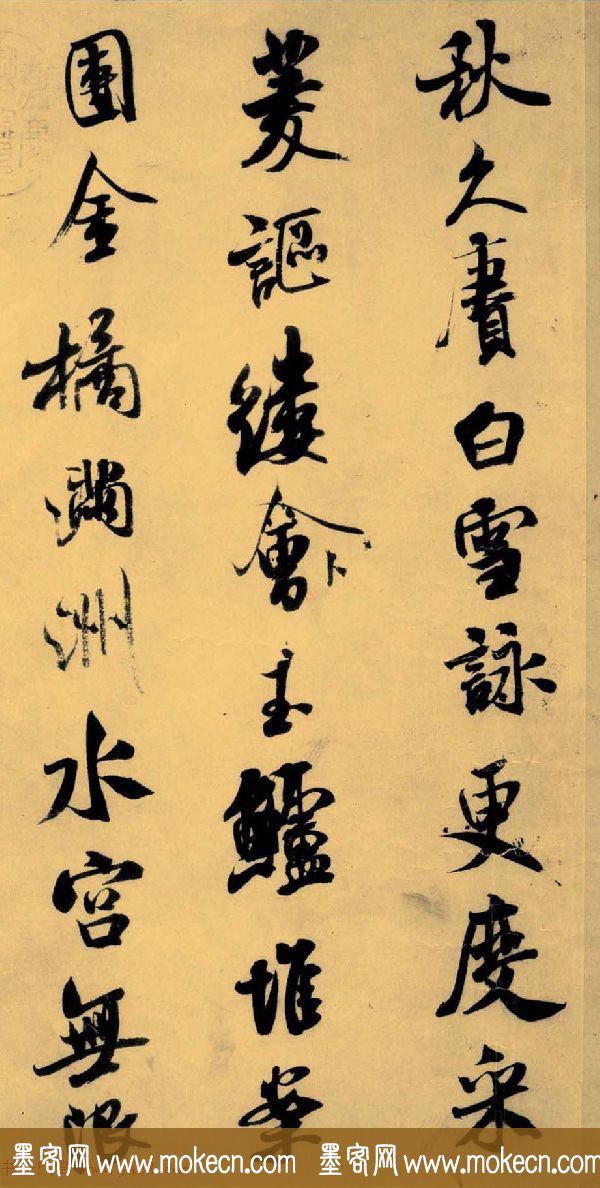 秋久賡白雪詠更度采
菱謳縷會玉鱸堆案
團金橘滿洲水宮無限
墨客网 www.mokecn.com 墨客网 www.mokecn.com